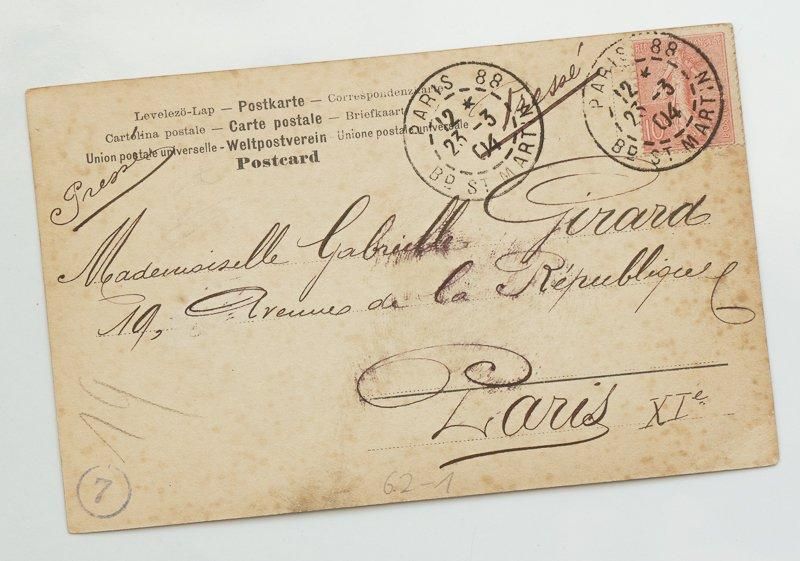 Levelezö-Lap – Postkarte – Correspondenzkarte
Cartolina postale – Carte postale – Briefkaart
Union postale universelle - Weltpostverein - Unione postale universale
Postcard
PARIS 88
12 *
23 -3
04
BD ST MARTIN
PARIS 88
12 *
23 -3
04
BD ST MARTIN
10
Pressé
Pressé
Mademoiselle Gabrielle Girard
19, Avenue de la République
Paris XIe
19
7
62-1